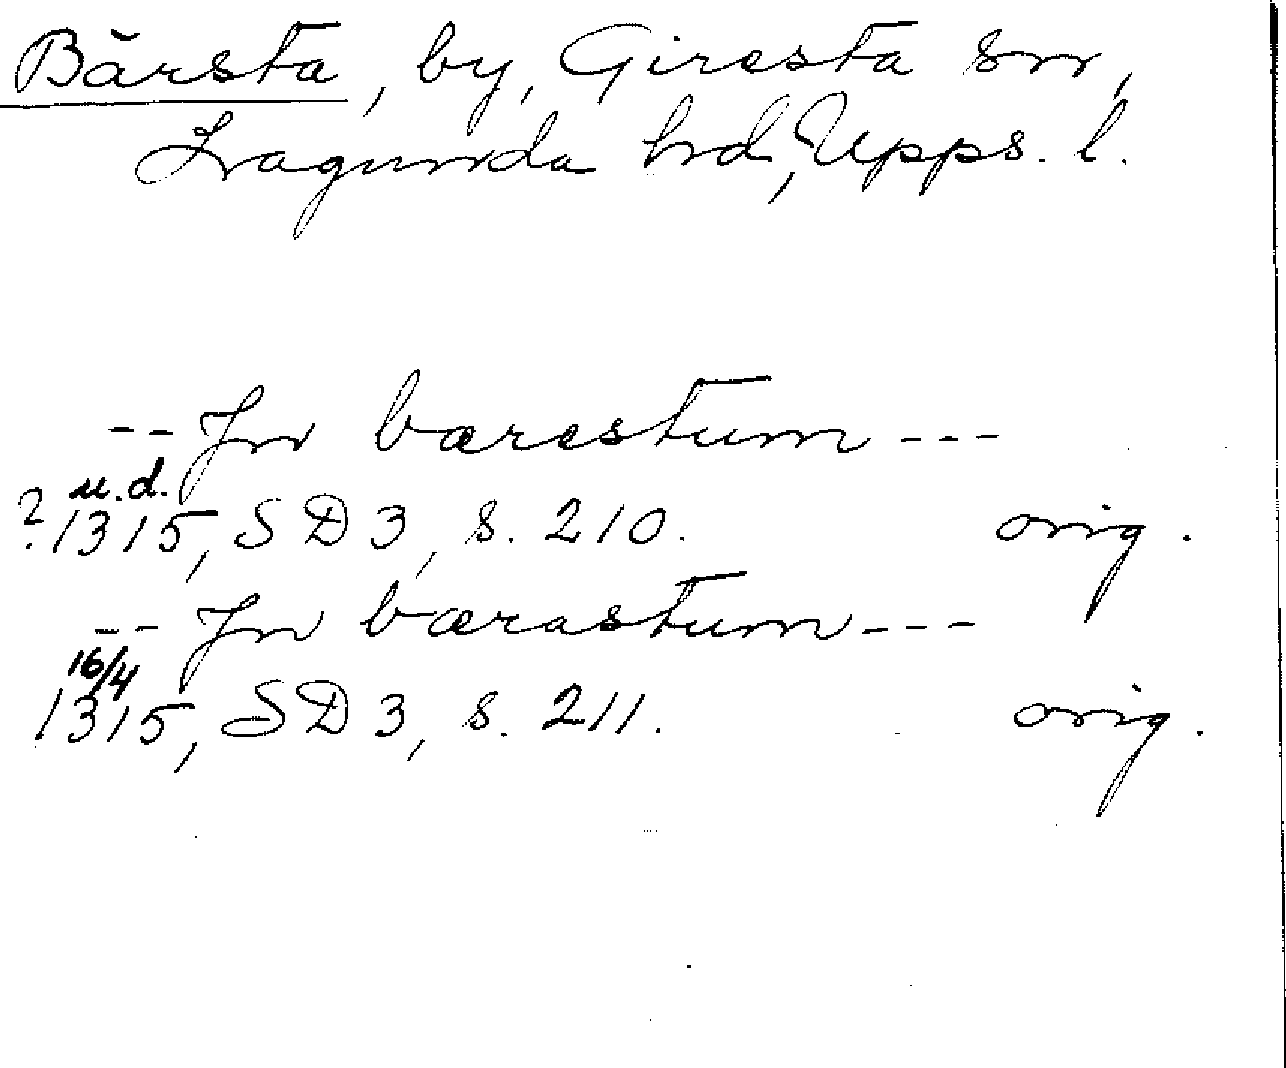 Bärsta, by, Giresta sn,
Lagunda hd, Upps. l.
-- Jn bærestum ---
u.d.
? 1315, SD 3, s. 210. orig.
-- Jn bærastum ---
16/4
1315, SD 3, s. 211. orig.